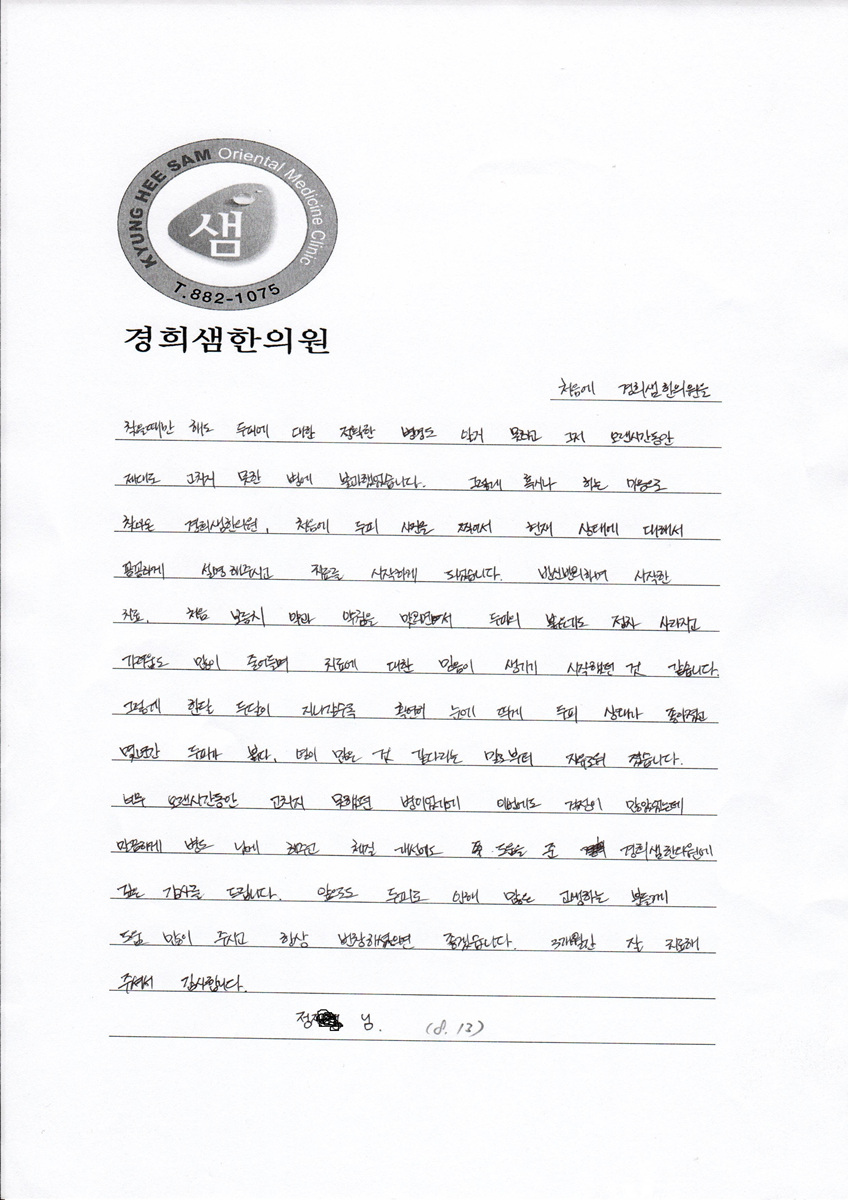 KYUNG HEE SAM Oriental Medicine Clinic
샘
T.882-1075
경희샘한의원
처음에 경희샘한의원을
찾을때만 해도 두피에 대한 정확한 병명도 알지 못하고 그저 오랜시간동안
제대로 고치지 못한 병에 불과했었습니다. 그렇게 혹시나 하는 마음으로
찾아온 경희샘한의원, 처음에 두피 사진을 찍어서 현재 상태에 대해서
꼼꼼하게 설명해주시고 치료를 시작하게 되었습니다. 반신반의하며 시작한
치료, 처음 보름치 약과 약침을 맞으면서 두피의 붉은기도 점차 사라지고
가려움도 많이 줄어들며 치료에 대한 믿음이 생기기 시작했던 것 같습니다.
그렇게 한달 두달이 지나갈수록 확연히 눈에 띄게 두피 상태가 좋아졌고
몇년간 두피가 붉다, 열이 많은 것 같다라는 말로부터 자유로워 졌습니다.
너무 오랜시간동안 고치지 못했던 병이었기에 이번에도 걱정이 많았었는데
말끔하게 병도 낫게 해주고 체질 개선에도 도움을 준 경희샘한의원에
깊은 감사를 드립니다. 앞으로도 두피로 인해 많은 고생하는 분들께
도움 많이 주시고 항상 번창하셨으면 좋겠습니다. 3개월간 잘 치료해
주셔서 감사합니다.
정 님. (8. 13)